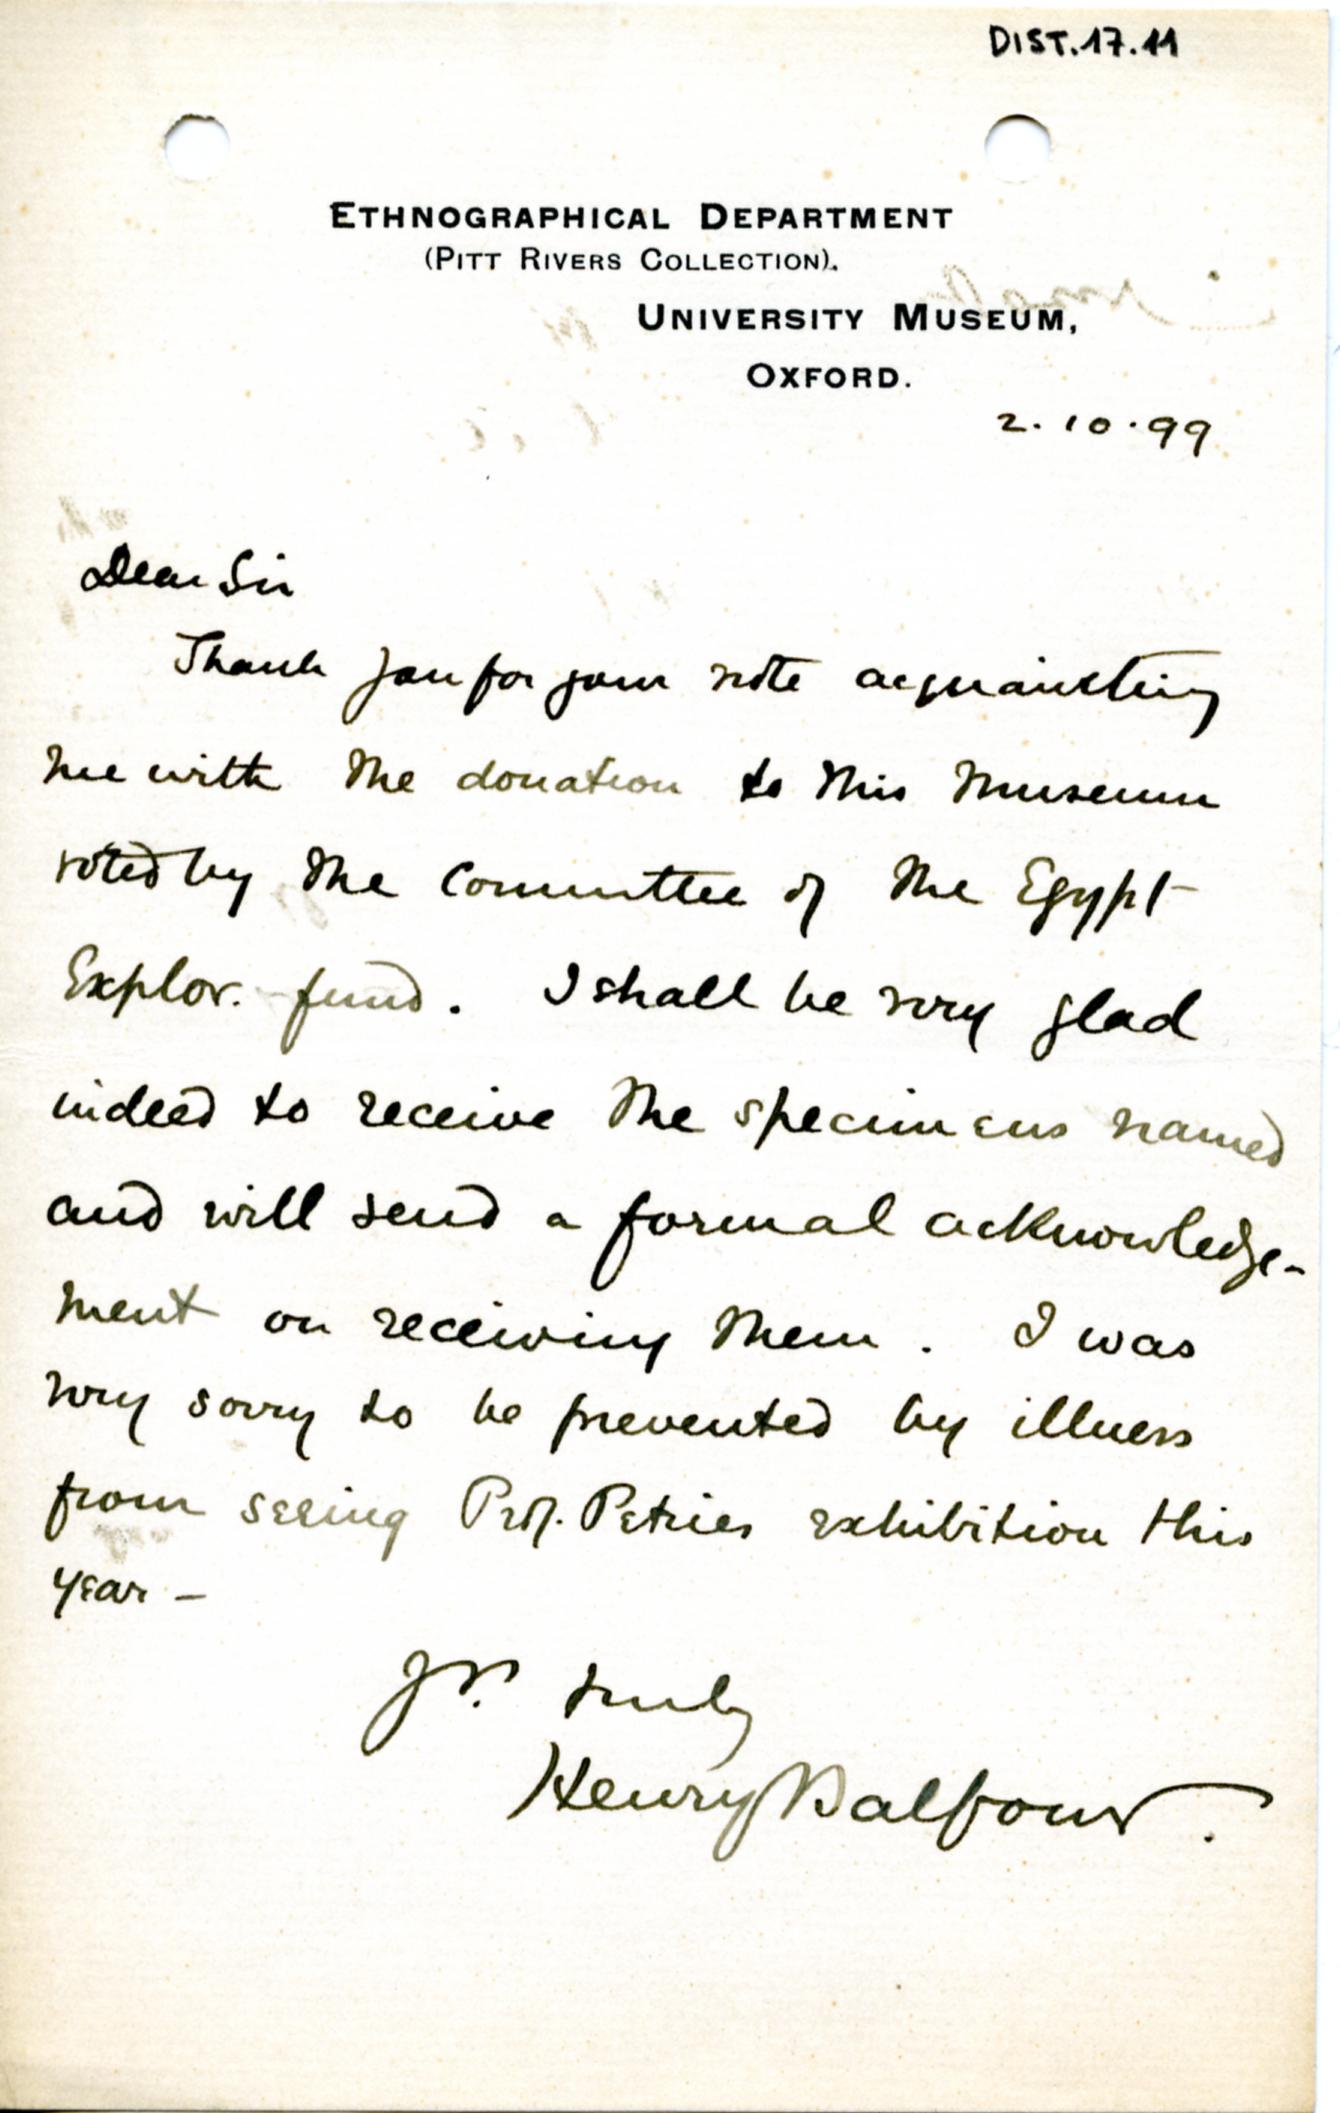 DIST.17.11
ETHNOGRAPHICAL DEPARTMENT
(PITT RIVERS COLLECTION).
UNIVERSITY MUSEUM,
OXFORD.
2.10.99
Dear Sir
Thank you for your note acquainting
me with the donation to this Museum
voted by the Committee of the Egypt
Explor. fund. I shall be very glad
indeed to receive the specimens named
and will send a formal acknowledge-
ment on receiving them. I was
very sorry to be prevented by illness
from seeing Prof. Petries exhibition this
year -
Yrs. truly
Henry Balfour.